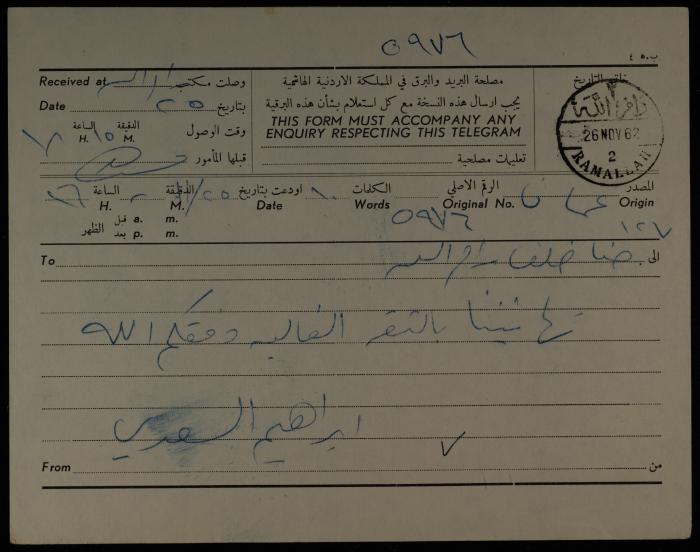 ب.ه ٤
٥٩٧٦
Received at رام الله وصلت مكتب
Date ٢٥ بتاريخ
الساعة H. ٧ الدقيقة M. ١٥ وقت الوصول
قبلها المأمور
مصلحة البريد والبرق في المملكة الاردنية الهاشمية
يجب ارسال هذه النسخة مع كل استعلام بشأن هذه البرقية
THIS FORM MUST ACCOMPANY ANY
ENQUIRY RESPECTING THIS TELEGRAM
تعليمات مصلحية
خاتم التاريخ
رام الله
26 NOV 62
2
RAMALLAH
المصدر Origin عمان
الرقم الاصلي Original No. ٥٩٧٦
الكلمات Words ١٠
اودعت بتاريخ Date ٢٥
الدقيقة M. الساعة H. ١٦
قبل a. m.
الظهر
بعد p. m.
١٢٧
To الى خلف رام الله
تهانينا وفقكم الله
ابراهيم
٧
From من